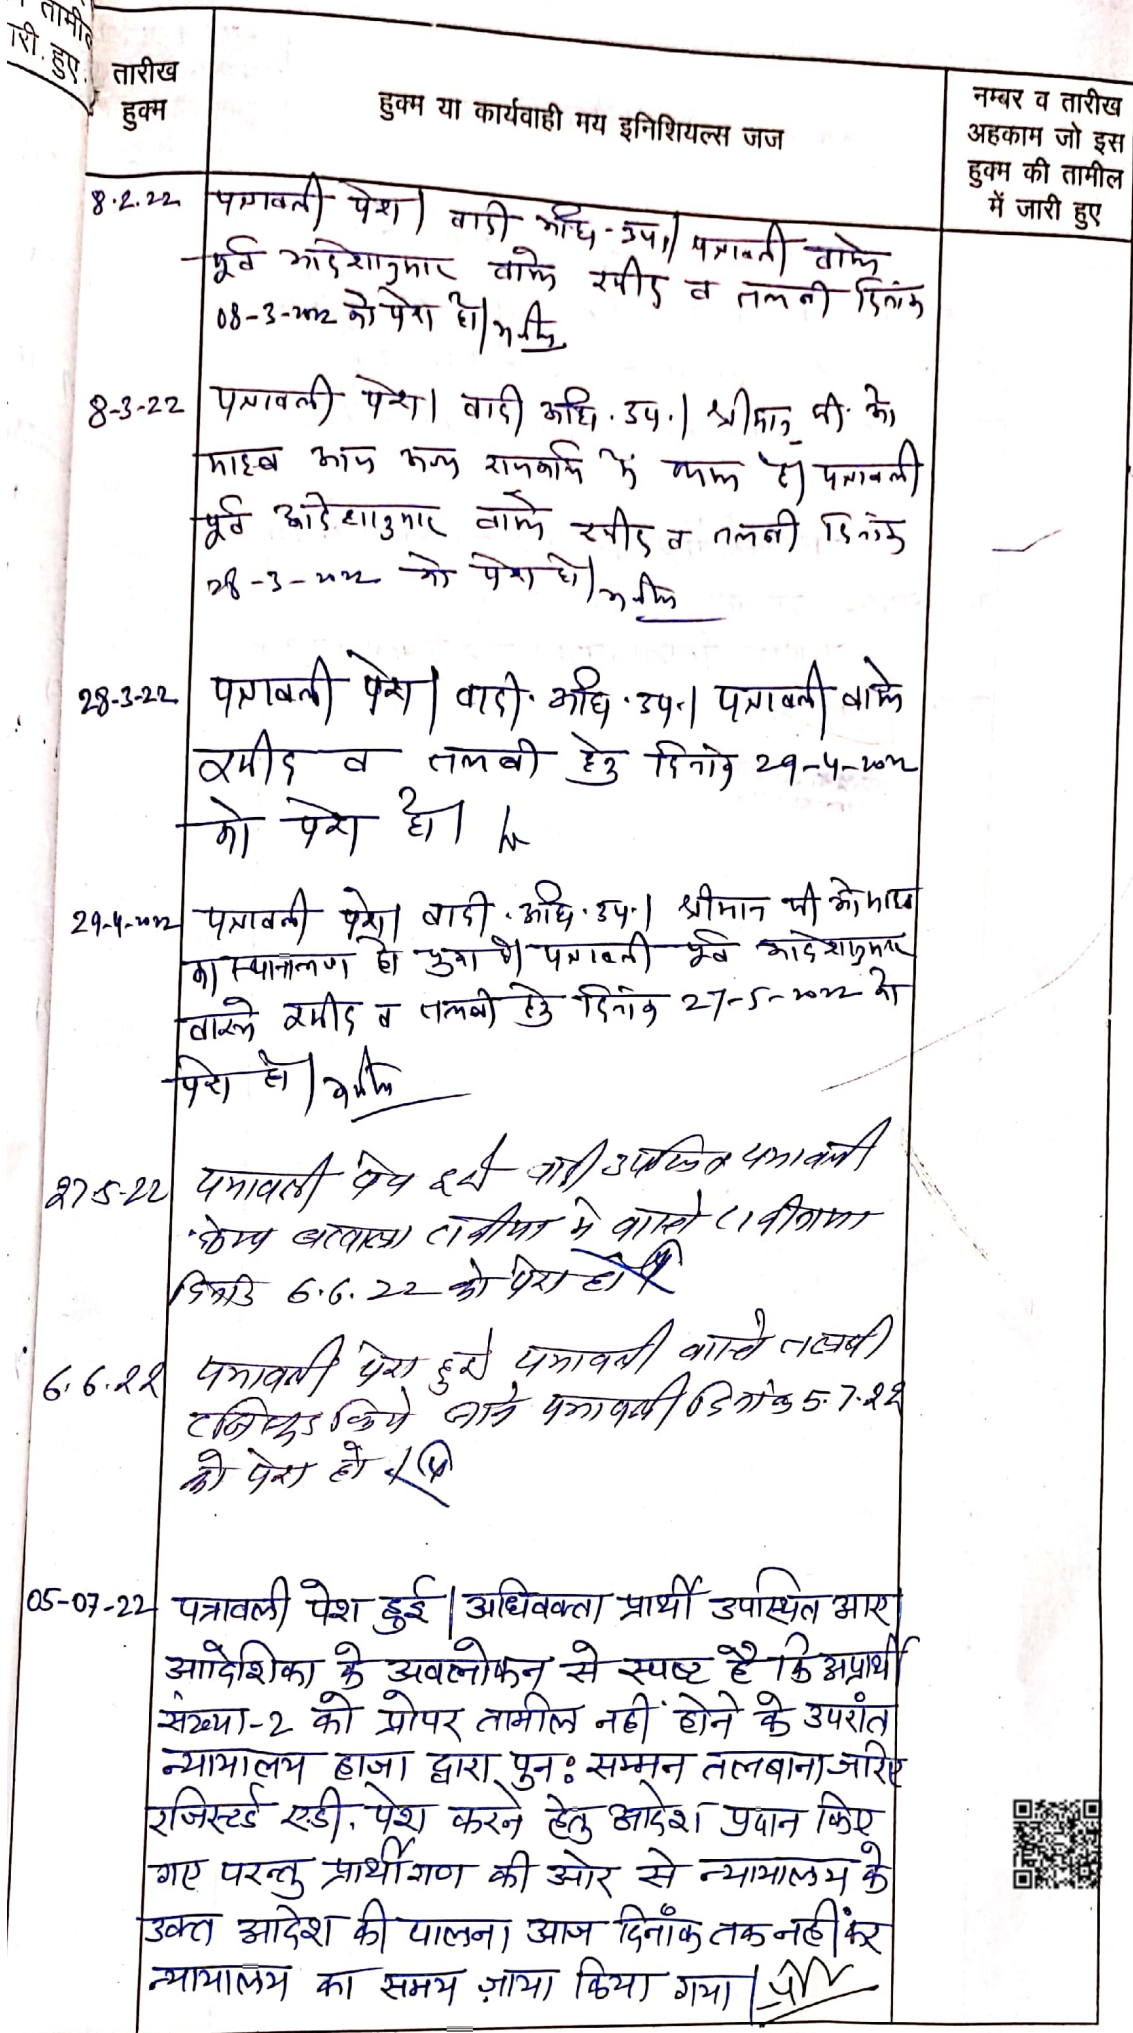 तामील
ारी. हुए.
तारीख
हुक्म
हुक्म या कार्यवाही मय इनिशियल्स जज
नम्बर व तारीख
अहकाम जो इस
हुक्म की तामील
में जारी हुए
8.2.22 पत्रावली पेश। वादी अधि. उप.। पत्रावली वास्ते
पूर्व आदेशानुसार वास्ते रसीद व तलबी दिनांक
08-3-2022 को पेश हो।
8-3-22 पत्रावली पेश। वादी अधि. उप.। श्रीमान् पी. ओ.
साहब आज अन्य राजकार्य में व्यस्त है। पत्रावली
पूर्व आदेशानुसार वास्ते रसीद व तलबी दिनांक
28-3-2022 को पेश हो।
28-3-22 पत्रावली पेश। वादी. अधि. उप.। पत्रावली वास्ते
रसीद व तलबी हेतु दिनांक 29-4-2022
को पेश हो।
29-4-2022 पत्रावली पेश। वादी. अधि. उप.। श्रीमान पी ओ साहब
का स्थानान्तरण हो चुका है। पत्रावली पूर्व आदेशानुसार
वास्ते रसीद व तलबी हेतु दिनांक 27-5-2022 को
पेश हो।
27-5-22 पत्रावली पेश हुई वादी उपस्थित पत्रावली
में वास्ते
दिनांक 6.6.22 को पेश हो
6.6.22 पत्रावली पेश हुई पत्रावली वास्ते तलबी
रजिस्टर्ड किये जाने पत्रावली दिनांक 5.7.22
को पेश हो
05-07-22 पत्रावली पेश हुई। अधिवक्ता प्रार्थी उपस्थित आए
आदेशिका के अवलोकन से स्पष्ट है कि अप्रार्थी
संख्या-2 को प्रोपर तामील नहीं होने के उपरांत
न्यायालय हाजा द्वारा पुन: सम्मन तलबाना जरिए
रजिस्टर्ड एडी. पेश करने हेतु आदेश प्रदान किए
गए परन्तु प्रार्थीगण की ओर से न्यायालय के
उक्त आदेश की पालना आज दिनाँक तक नहीं कर
न्यायालय का समय ज़ाया किया गया।